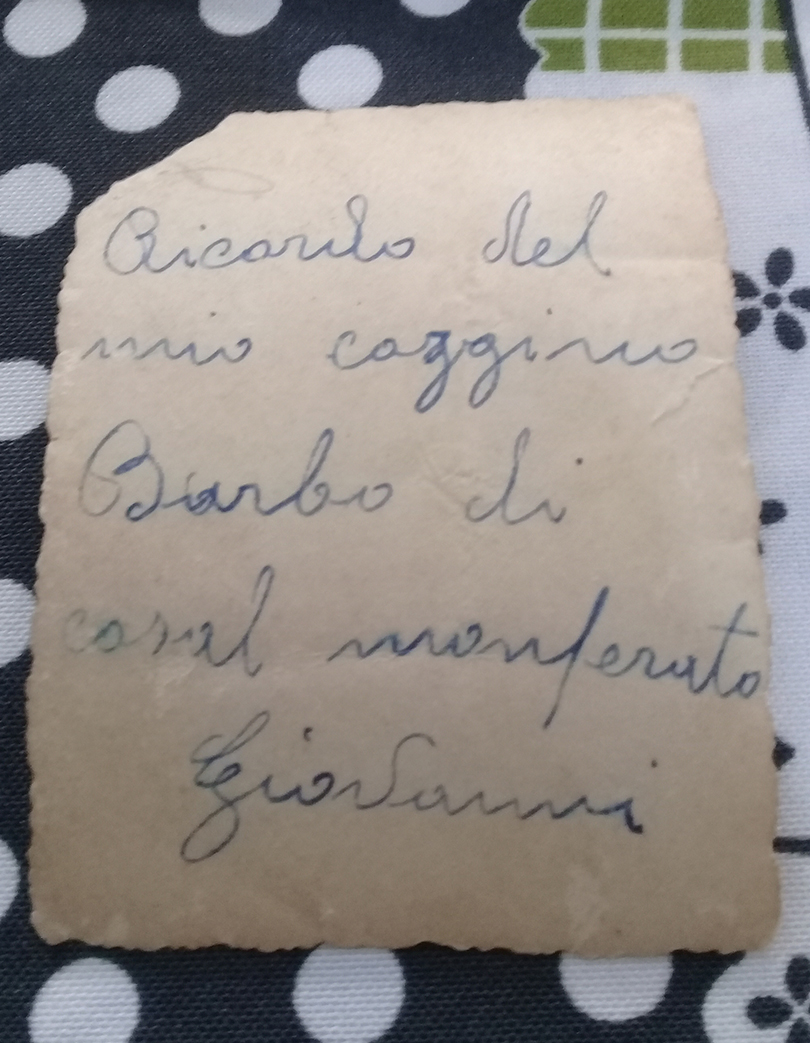 Ricardo del
mio cozzino
Barbo di
casal monferato
Giovanni